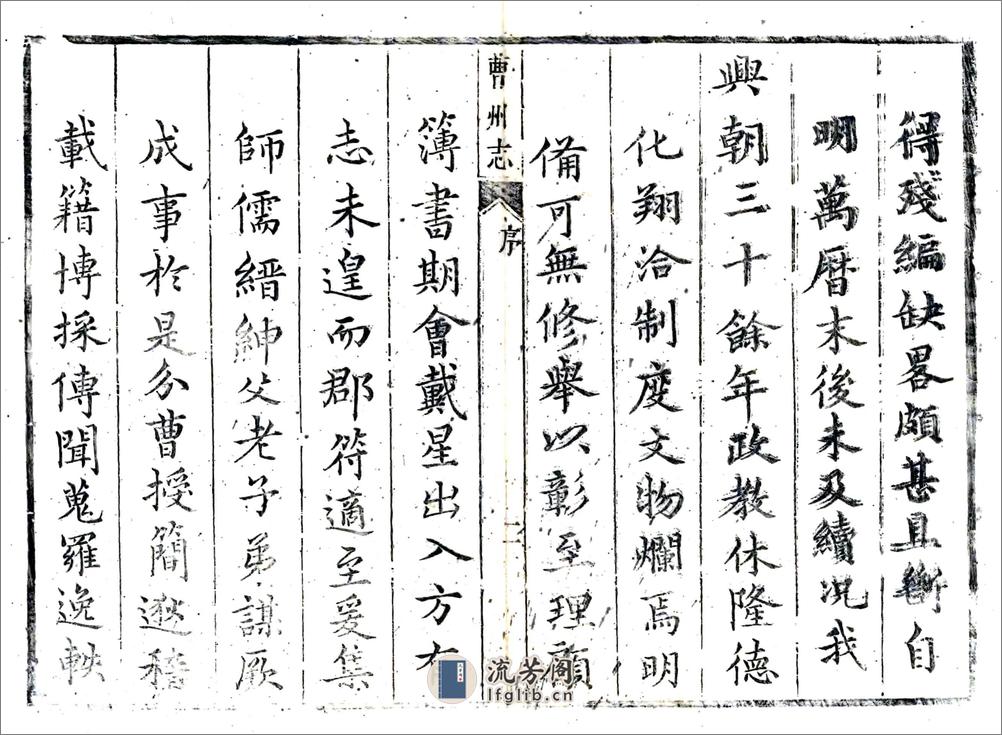 得殘編缺畧頗甚且斷自
明萬曆末後未及續況我
興朝三十餘年政教休隆德
化翔洽制度文物爛焉明
備可無修舉以彰至理顧
曹州志 序 二
簿書期會戴星出入方有
志未遑而郡符適至爰集
師儒縉紳父老子弟謀厥
成事於是分曹授簡遜稽
載籍博採傳聞蒐羅逸軼
流芳阁
lfglib.cn